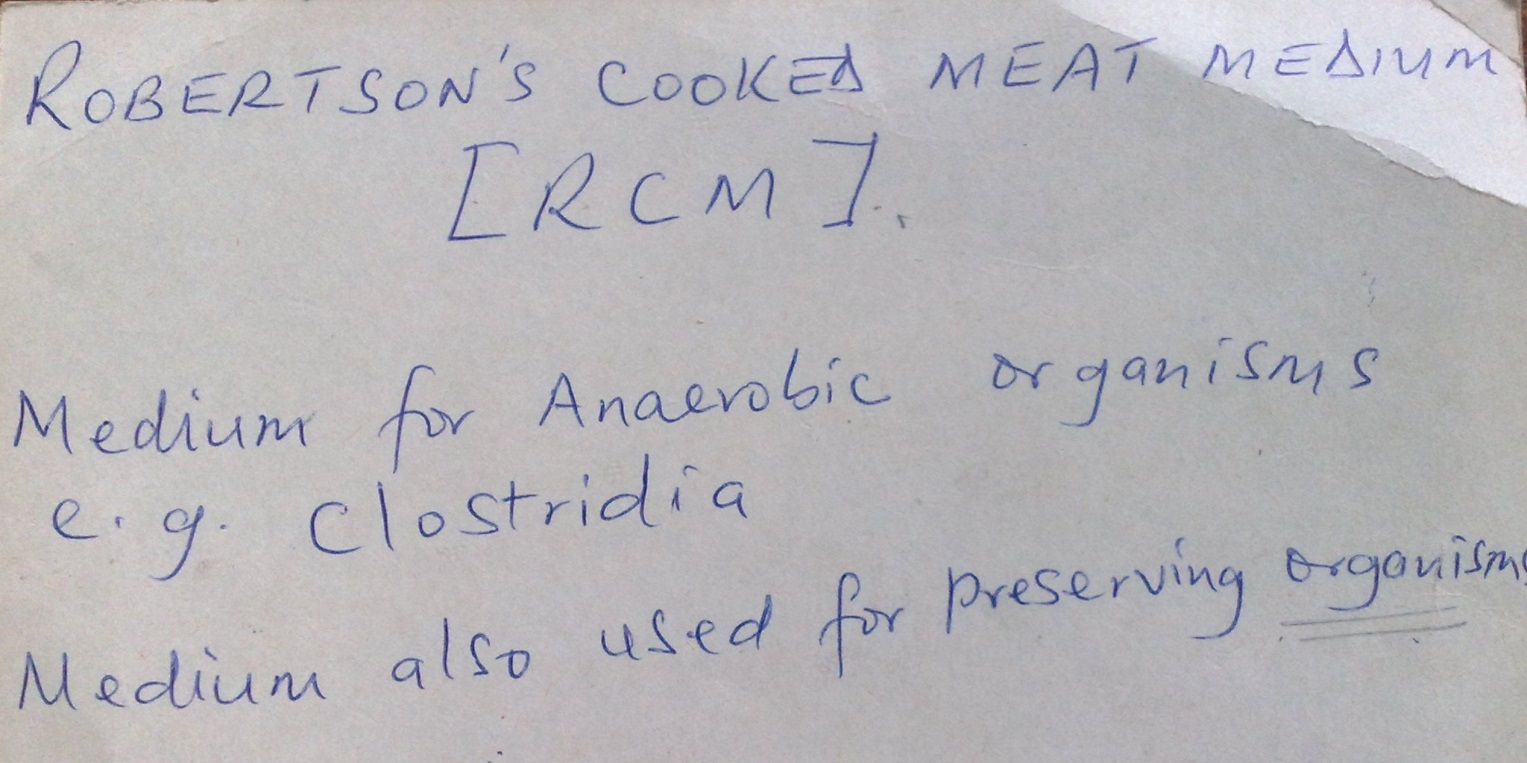 ROBERTSON'S COOKED MEAT MEDIUM
[RCM].
Medium for Anaerobic organisms
e.g. Clostridia
Medium also used for preserving organisms